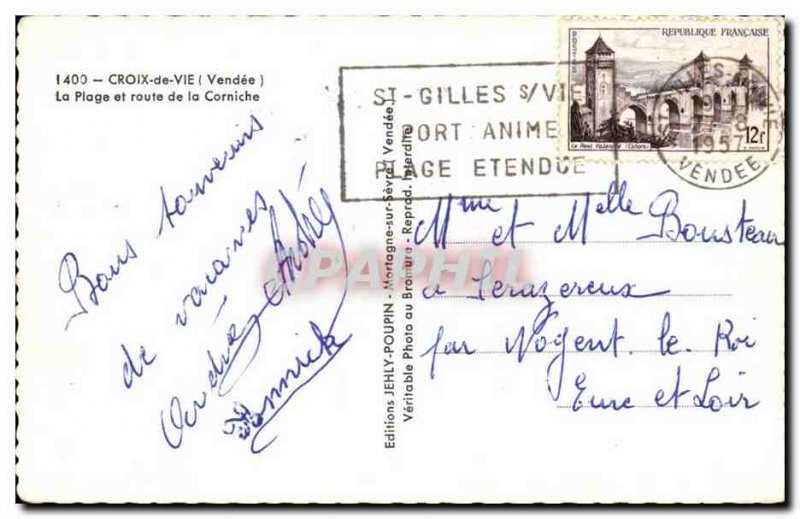 1400 — CROIX-de-VIE ( Vendée )
La Plage et route de la Corniche
Bons souvenirs
de vacances
Andrée André
Yannick
Editions JEHLY-POUPIN - Mortagne-sur-Sèvre (Vendée)
Véritable Photo au Bromure - Reprod. Interdite
ST-GILLES S/VIE
PORT ANIME
PLAGE ETENDUE
REPUBLIQUE FRANÇAISE
POSTES
Le Pont Valentré (Cahors)
12f
1957
VENDEE
Mme et Melle Bousteau
à Serazereux
par Nogent. le. Roi
Eure et Loir
CPAPHIL